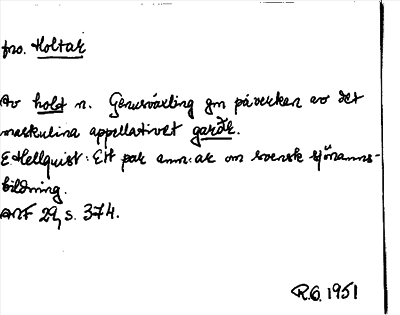 fno. Holtar
Av hold n. Genusväxling gm påverkan av det
maskulina appellativet garðr.
E Hellquist: Ett par anm:ar om svensk sjönamns-
bildning.
ANF 29, s. 374.
R.G. 1951